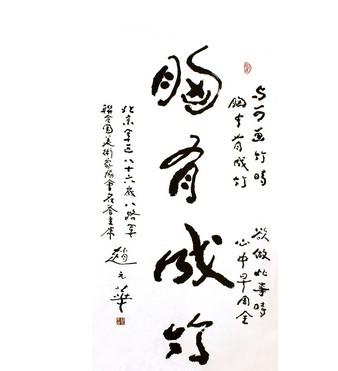 与可画竹時
胸中有成竹
欲做此事時
心中早周全
胸有成竹
北京軍區八十六歲八路軍
聯合国美術家協會名誉主席
趙元華